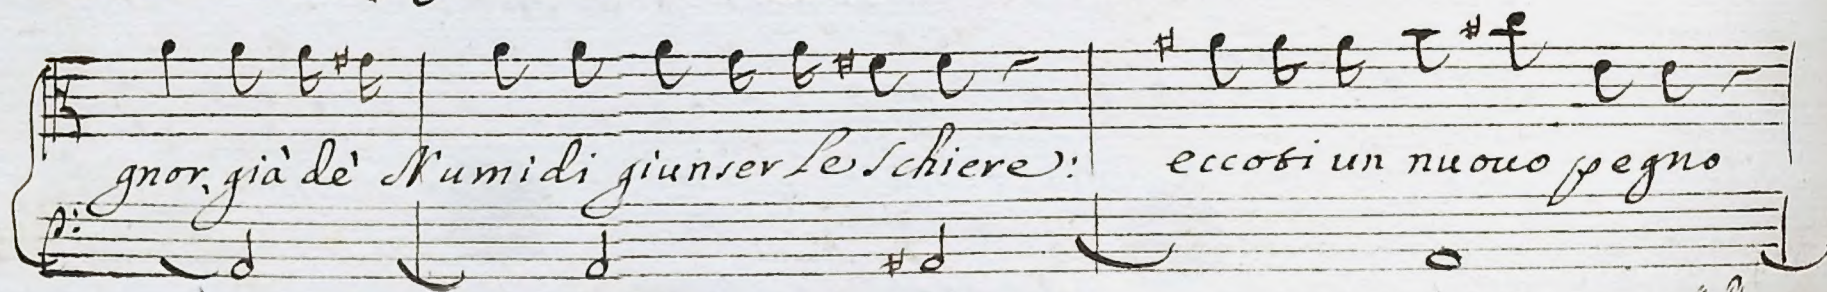 gnor, già dè Numidi giunser le schiere: eccoti un nuouo pegno